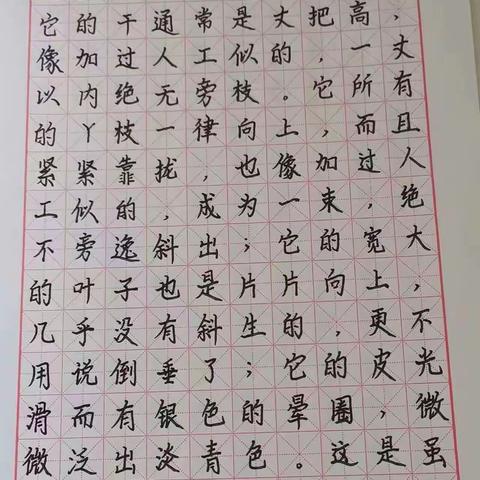 它的干通常是丈把高，
像加过人工似的，一丈
以内绝无旁枝。它所有
的丫枝一律向上，而且
紧紧靠拢，也像加过人
工似的，成为一束，绝
不旁逸斜出；它的宽大
的叶子也是片片向上，
几乎没有斜生的，更不
用说倒垂了；它的皮光
滑而有银色的晕圈，微
微泛出淡青色。这是虽